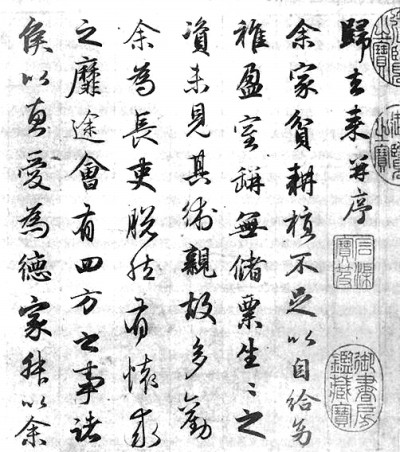 歸去来并序
余家貧耕植不足以自給幼
稚盈室缾無儲粟生〻之
資未見其術親故多勸
余為長吏脫然有懷求
之靡途會有四方之事諸
侯以惠愛為德家叔以余
石渠寶笈
御書房鑑藏寶